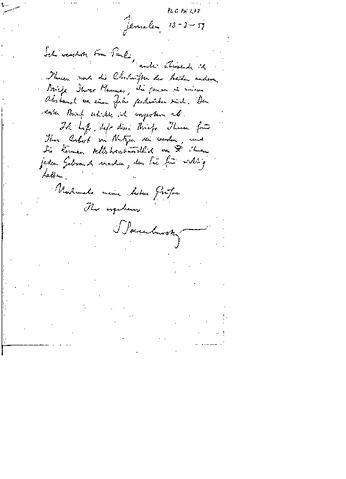 Jerusalem, 13-3-59
Sehr verehrte Frau Pauli,
anbei übersende ich
Ihnen noch die Abschriften der beiden anderen
Briefe Ihres Mannes, die genau in einem
Abstand von einem Jahr geschrieben sind. Den
ersten Brief schickte ich vorgestern ab.
Ich hoffe, dass diese Briefe Ihnen für
Ihre Arbeit von Nutzen sein werden, und
Sie können selbstverständlich von ihnen
jeden Gebrauch machen, den Sie für richtig
halten.
Nochmals meine besten Grüsse
Ihr ergebener
S Sambursky